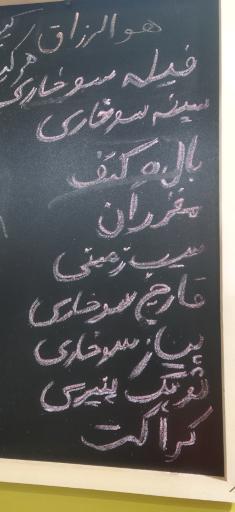 هوالرزاق
فیله سوخاری
سینه سوخاری
بال و کتف
مغز ران
سیب زمینی
قارچ سوخاری
پیاز سوخاری
تویک پنیری
کراکت